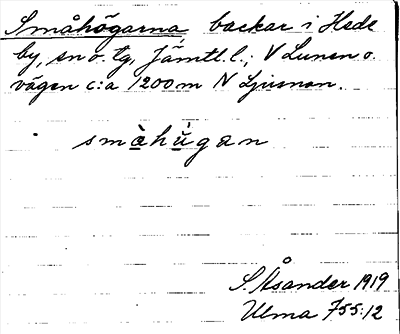 Småhögarna, backar i Hede
by, sn o. tg, Jämtl. l.; V Lunen o.
vägen c:a 1200 m N Ljusnan.
smàhù̀gan
S. Åsander 1919
Ulma 755:12